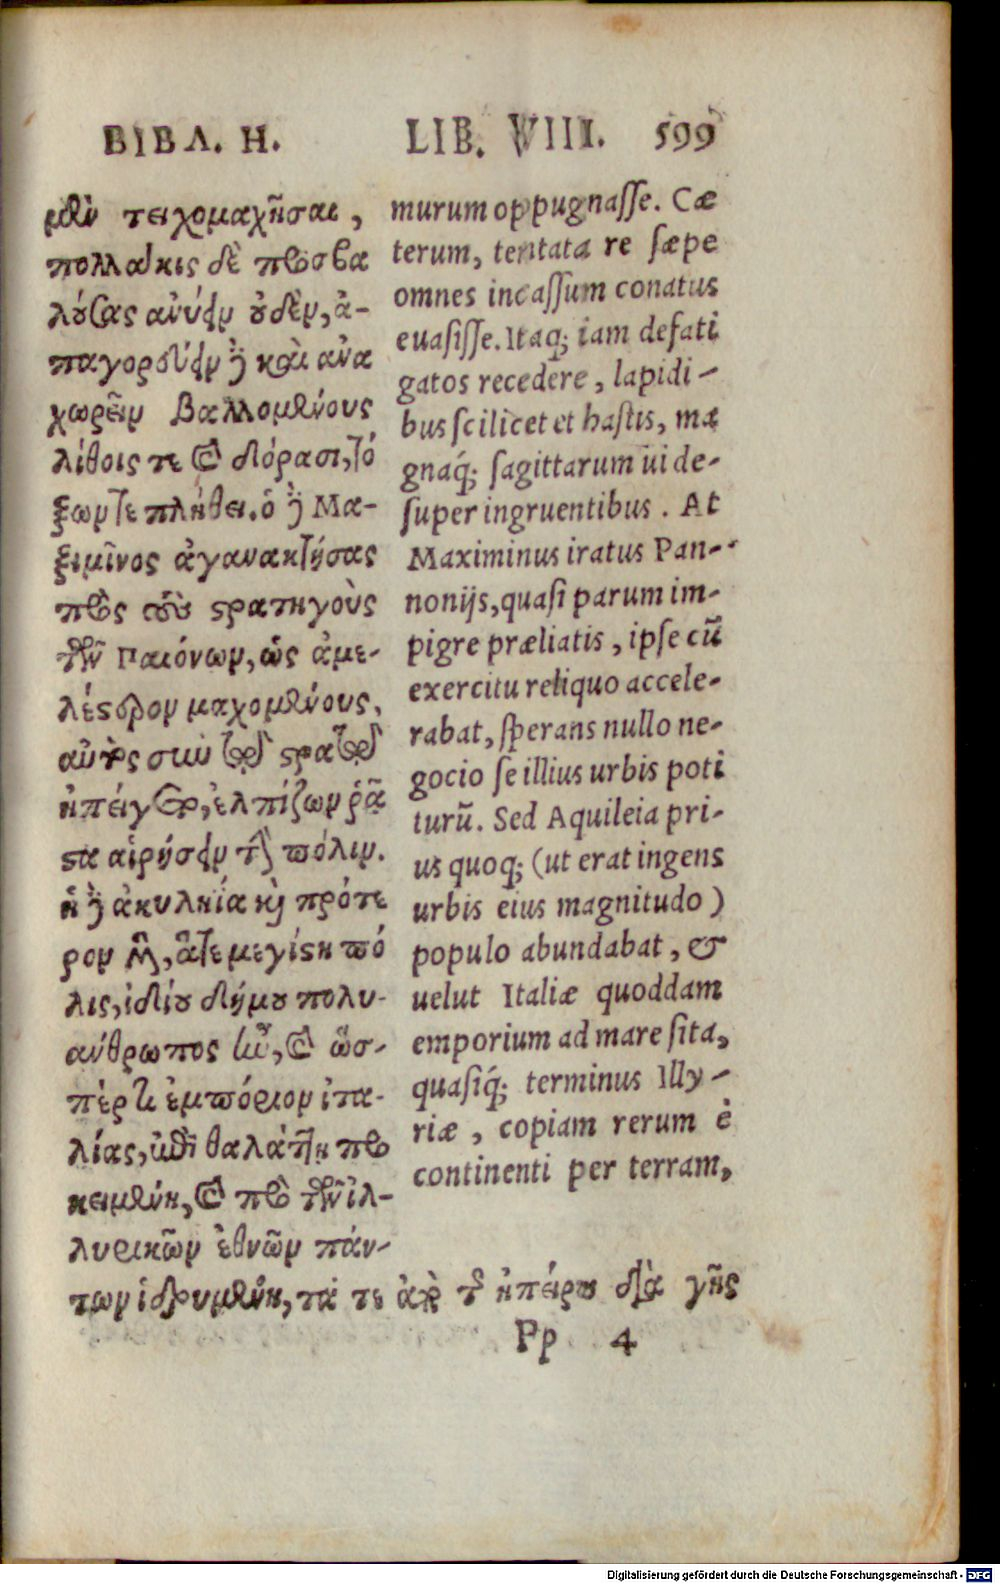 ΒΙΒΛ. Η.
μὲν τειχομαχῆσαι,
πολλάκις δὲ προσβα
λόντας ἀνύειν οὐδὲν, ἀ-
παγορεύειν δὲ καὶ ἀνα
χωρεῖν βαλλομένους
λίθοις τε καὶ δόρασι, τό
ξων τε πλήθει. ὁ δὲ Μα-
ξιμῖνος ἀγανακτήσας
πρὸς τοὺς στρατηγοὺς
τῶν Παιόνων, ὡς ἀμε-
λέστερον μαχομένους,
αὐτὸς σὺν τῷ στρατῷ
ἠπείγετο, ἐλπίζων ῥᾷ
στα αἱρήσειν τὴν πόλιν.
ἡ δὲ ἀκυληία καὶ πρότε
ρον μὲν, ἅτε μεγίστη πό
λις, ἰδίου δήμου πολυ-
άνθρωπος ἦν, καὶ ὥσ-
πέρ τι ἐμπόριον ἰτα-
λίας, ἐπὶ θαλάττῃ προ
κειμένη, καὶ πρὸ τῶν ἰλ-
λυρικῶν ἐθνῶν πάν-
των ἱδρυμένη, τά τε ἀπὸ τῆς ἠπείρου διὰ γῆς
LIB. VIII. 599
murum oppugnasse. Cæ
terum, tentata re sæpe
omnes incassum conatus
euasisse. Itaq; iam defati
gatos recedere, lapidi-
bus scilicet et hastis, ma
gnaq́; sagittarum ui de-
super ingruentibus. At
Maximinus iratus Pan-
nonijs, quasi parum im-
pigre præliatis, ipse cū
exercitu reliquo accele-
rabat, sperans nullo ne-
gocio se illius urbis poti
turū. Sed Aquileia pri-
us quoq; (ut erat ingens
urbis eius magnitudo)
populo abundabat, &
uelut Italiæ quoddam
emporium ad mare sita,
quasiq́; terminus Illy-
riæ, copiam rerum è
continenti per terram,
Pp 4
Digitalisierung gefördert durch die Deutsche Forschungsgemeinschaft - DFG